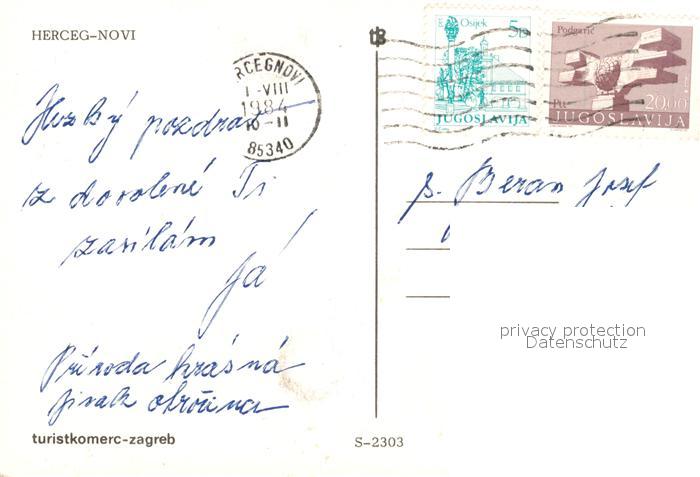 HERCEG-NOVI
tz
Osijek 5D
JUGOSLAVIJA
Podgarić
Ptt 20.00
JUGOSLAVIJA
RCEGNOVI
1-VIII
1984
10-11
85340
Hezký pozdrav
z dovolené Ti
zasílám
Já
Příroda krásná
jinak otročina
p. Beran Josef
privacy protection
Datenschutz
turistkomerc-zagreb
S-2303